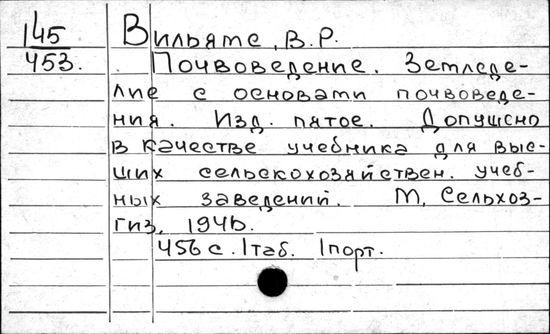 145
453.
Вильямс, В.Р.
Почвоведение. Земледе-
лие с основами почвоведе-
ния. Изд. пятое. Допущено
в качестве учебника для выс-
ших сельскохозяйствен. учеб-
ных заведений. М, Сельхоз-
гиз, 1946.
456 с. 1таб. 1порт.